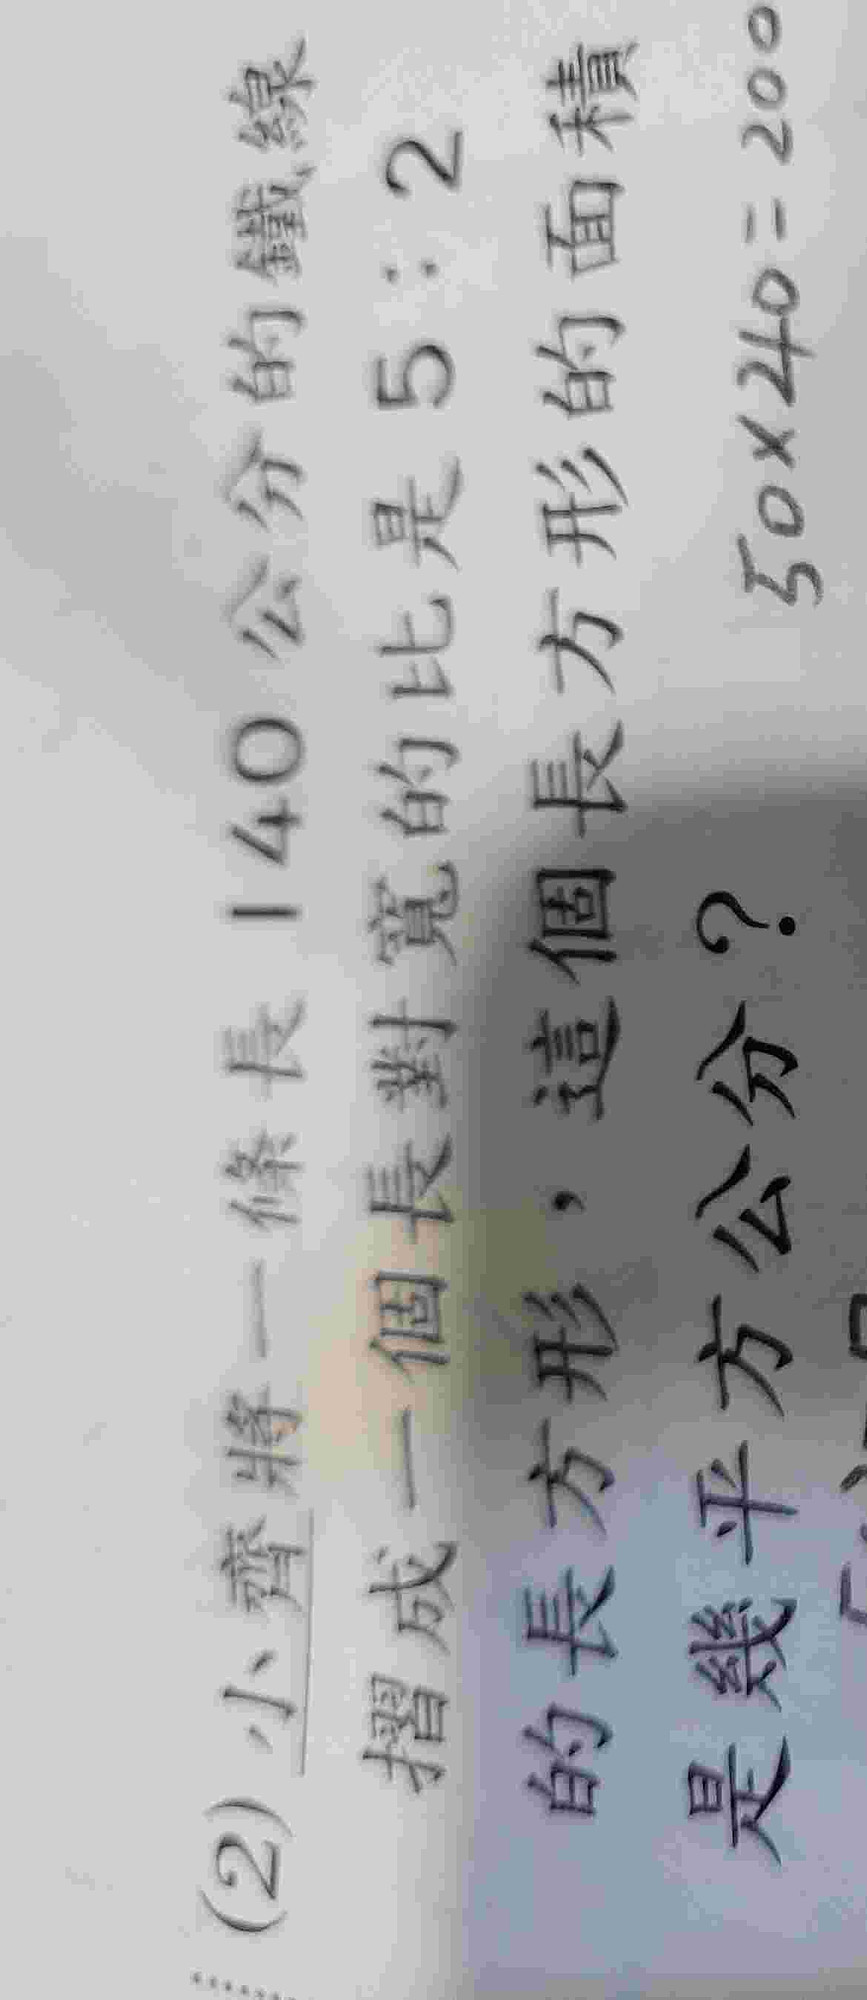 (2) 小齊將一條長 140 公分的鐵線
摺成一個長對寬的比是 5：2
的長方形，這個長方形的面積
是幾平方公分？
50×40=200